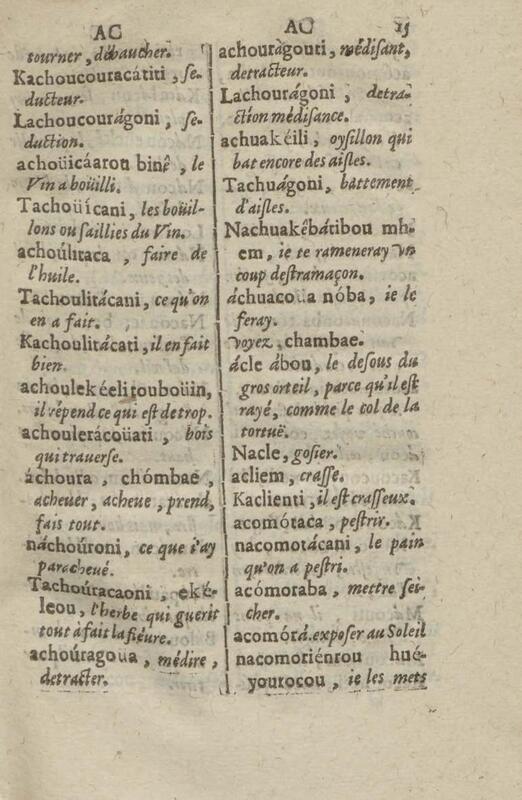 AC
tourner, débaucher.
Kachoucouracátiti, se-
ducteur.
Lachoucourágoni, se-
duction.
achoüicáarou binê, le
Vin a boüilli.
Tachoüícani, les boüil-
lons ou saillies du Vin.
achoúlitaca, faire de
l'huile.
Tachoulitácani, ce qu'on
en a fait.
Kachoulitácati, il en fait
bien.
achoulekéelitouboüin,
il répend ce qui est de trop.
achouleracoüati, bois
qui trauerse.
áchoura, chómbae,
acheuer, acheue, prend,
fais tout.
náchoúroni, ce que i'ay
paracheué.
Tachoúracaoni, eké-
leou, l'herbe qui guerit
tout à fait la fiéure.
achoúragoua, médire,
detracter.
AC
15
achouragouti, médisant,
detracteur.
Lachouragoni, detra-
ction médisance.
achuakéili, oysillon qui
bat encore des aisles.
Tachuágoni, battement
d'aisles.
Nachuakêbátibou mh-
em, ie te rameneray vn
coup destramaçon.
áchuacoüa nóba, ie le
feray.
voyez, chambae.
ácle ábou, le desous du
gros orteil, parce qu'il est
rayé, comme le col de la
tortuë.
Nacle, gosier.
acliem, crasse.
Kaclienti, il est crasseux.
acomótaca, pestrir.
nacomotácani, le pain
qu'on a pestri.
acómoraba, mettre sei-
cher.
acomórá. exposer au Soleil
nacomoriénrou hué-
yourocou, ie les mets